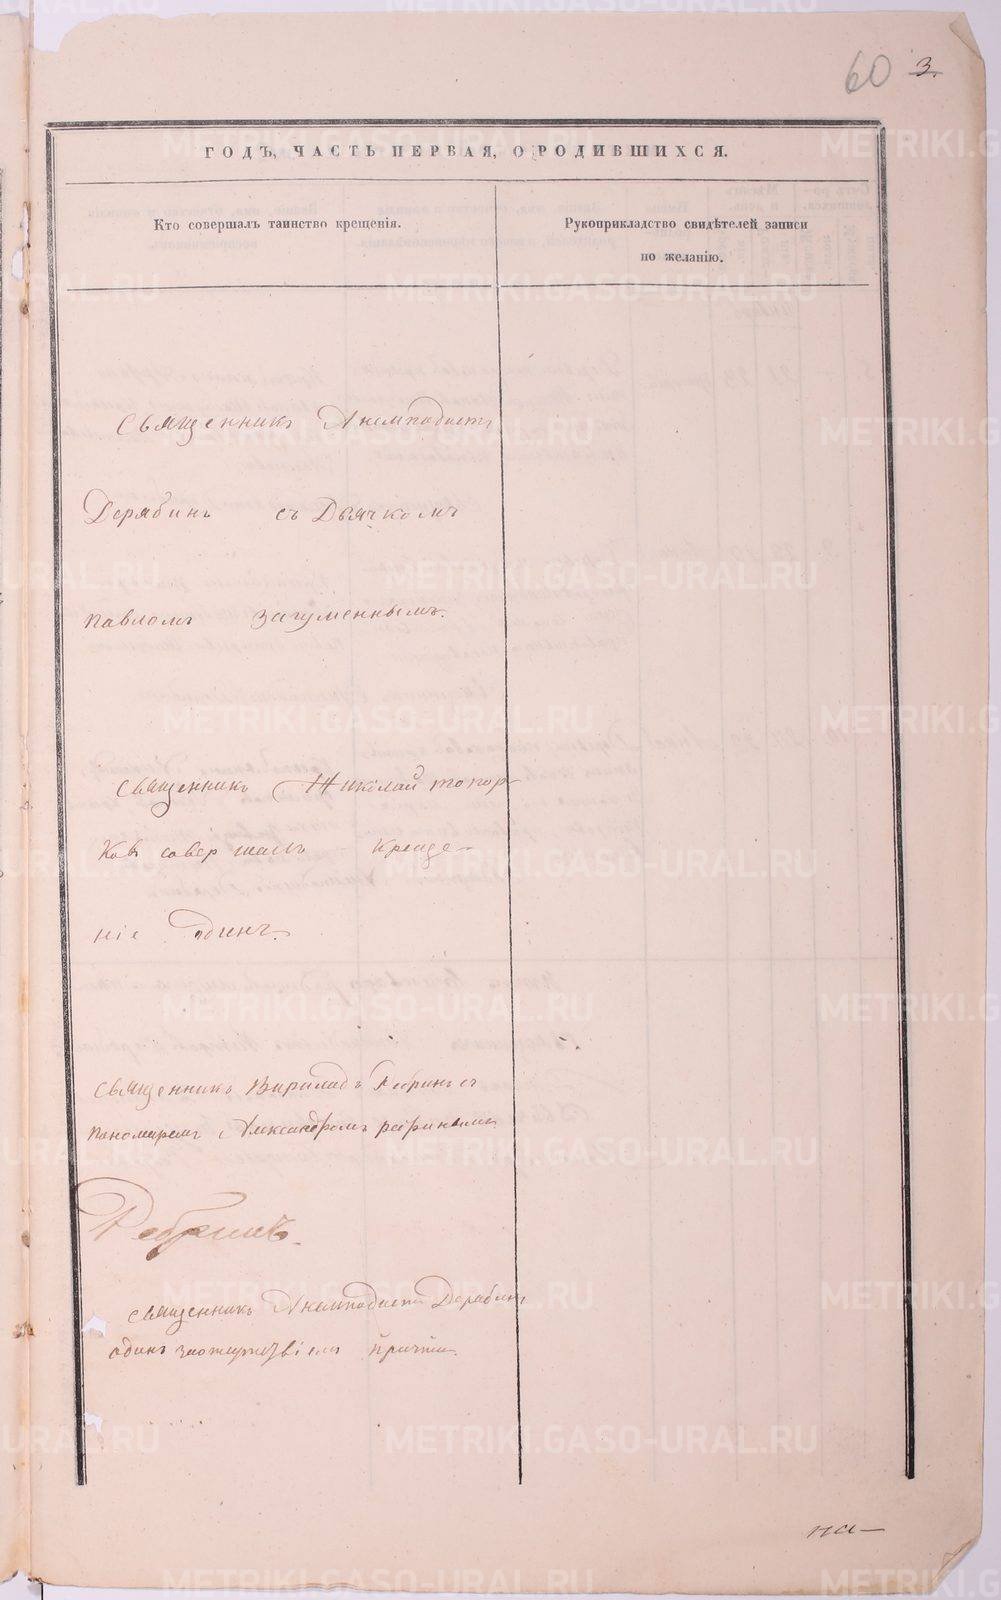 60 3.
ГОДЪ, ЧАСТЬ ПЕРВАЯ, О РОДИВШИХСЯ.
Кто совершалъ таинство крещенія.
Рукоприкладство свидѣтелей записи
по желанію.
священникъ Анемподистъ
Дерябинъ съ Дьячкомъ
павломъ загуменнымъ.
священникъ Николай топор-
ковъ совершалъ креще-
ніе одинъ.
священникъ Ребринъ съ
пономаремъ Александромъ
священникъ Анемподистъ Дерябинъ
одинъ причта.
на-
METRIKI.GASO-URAL.RU